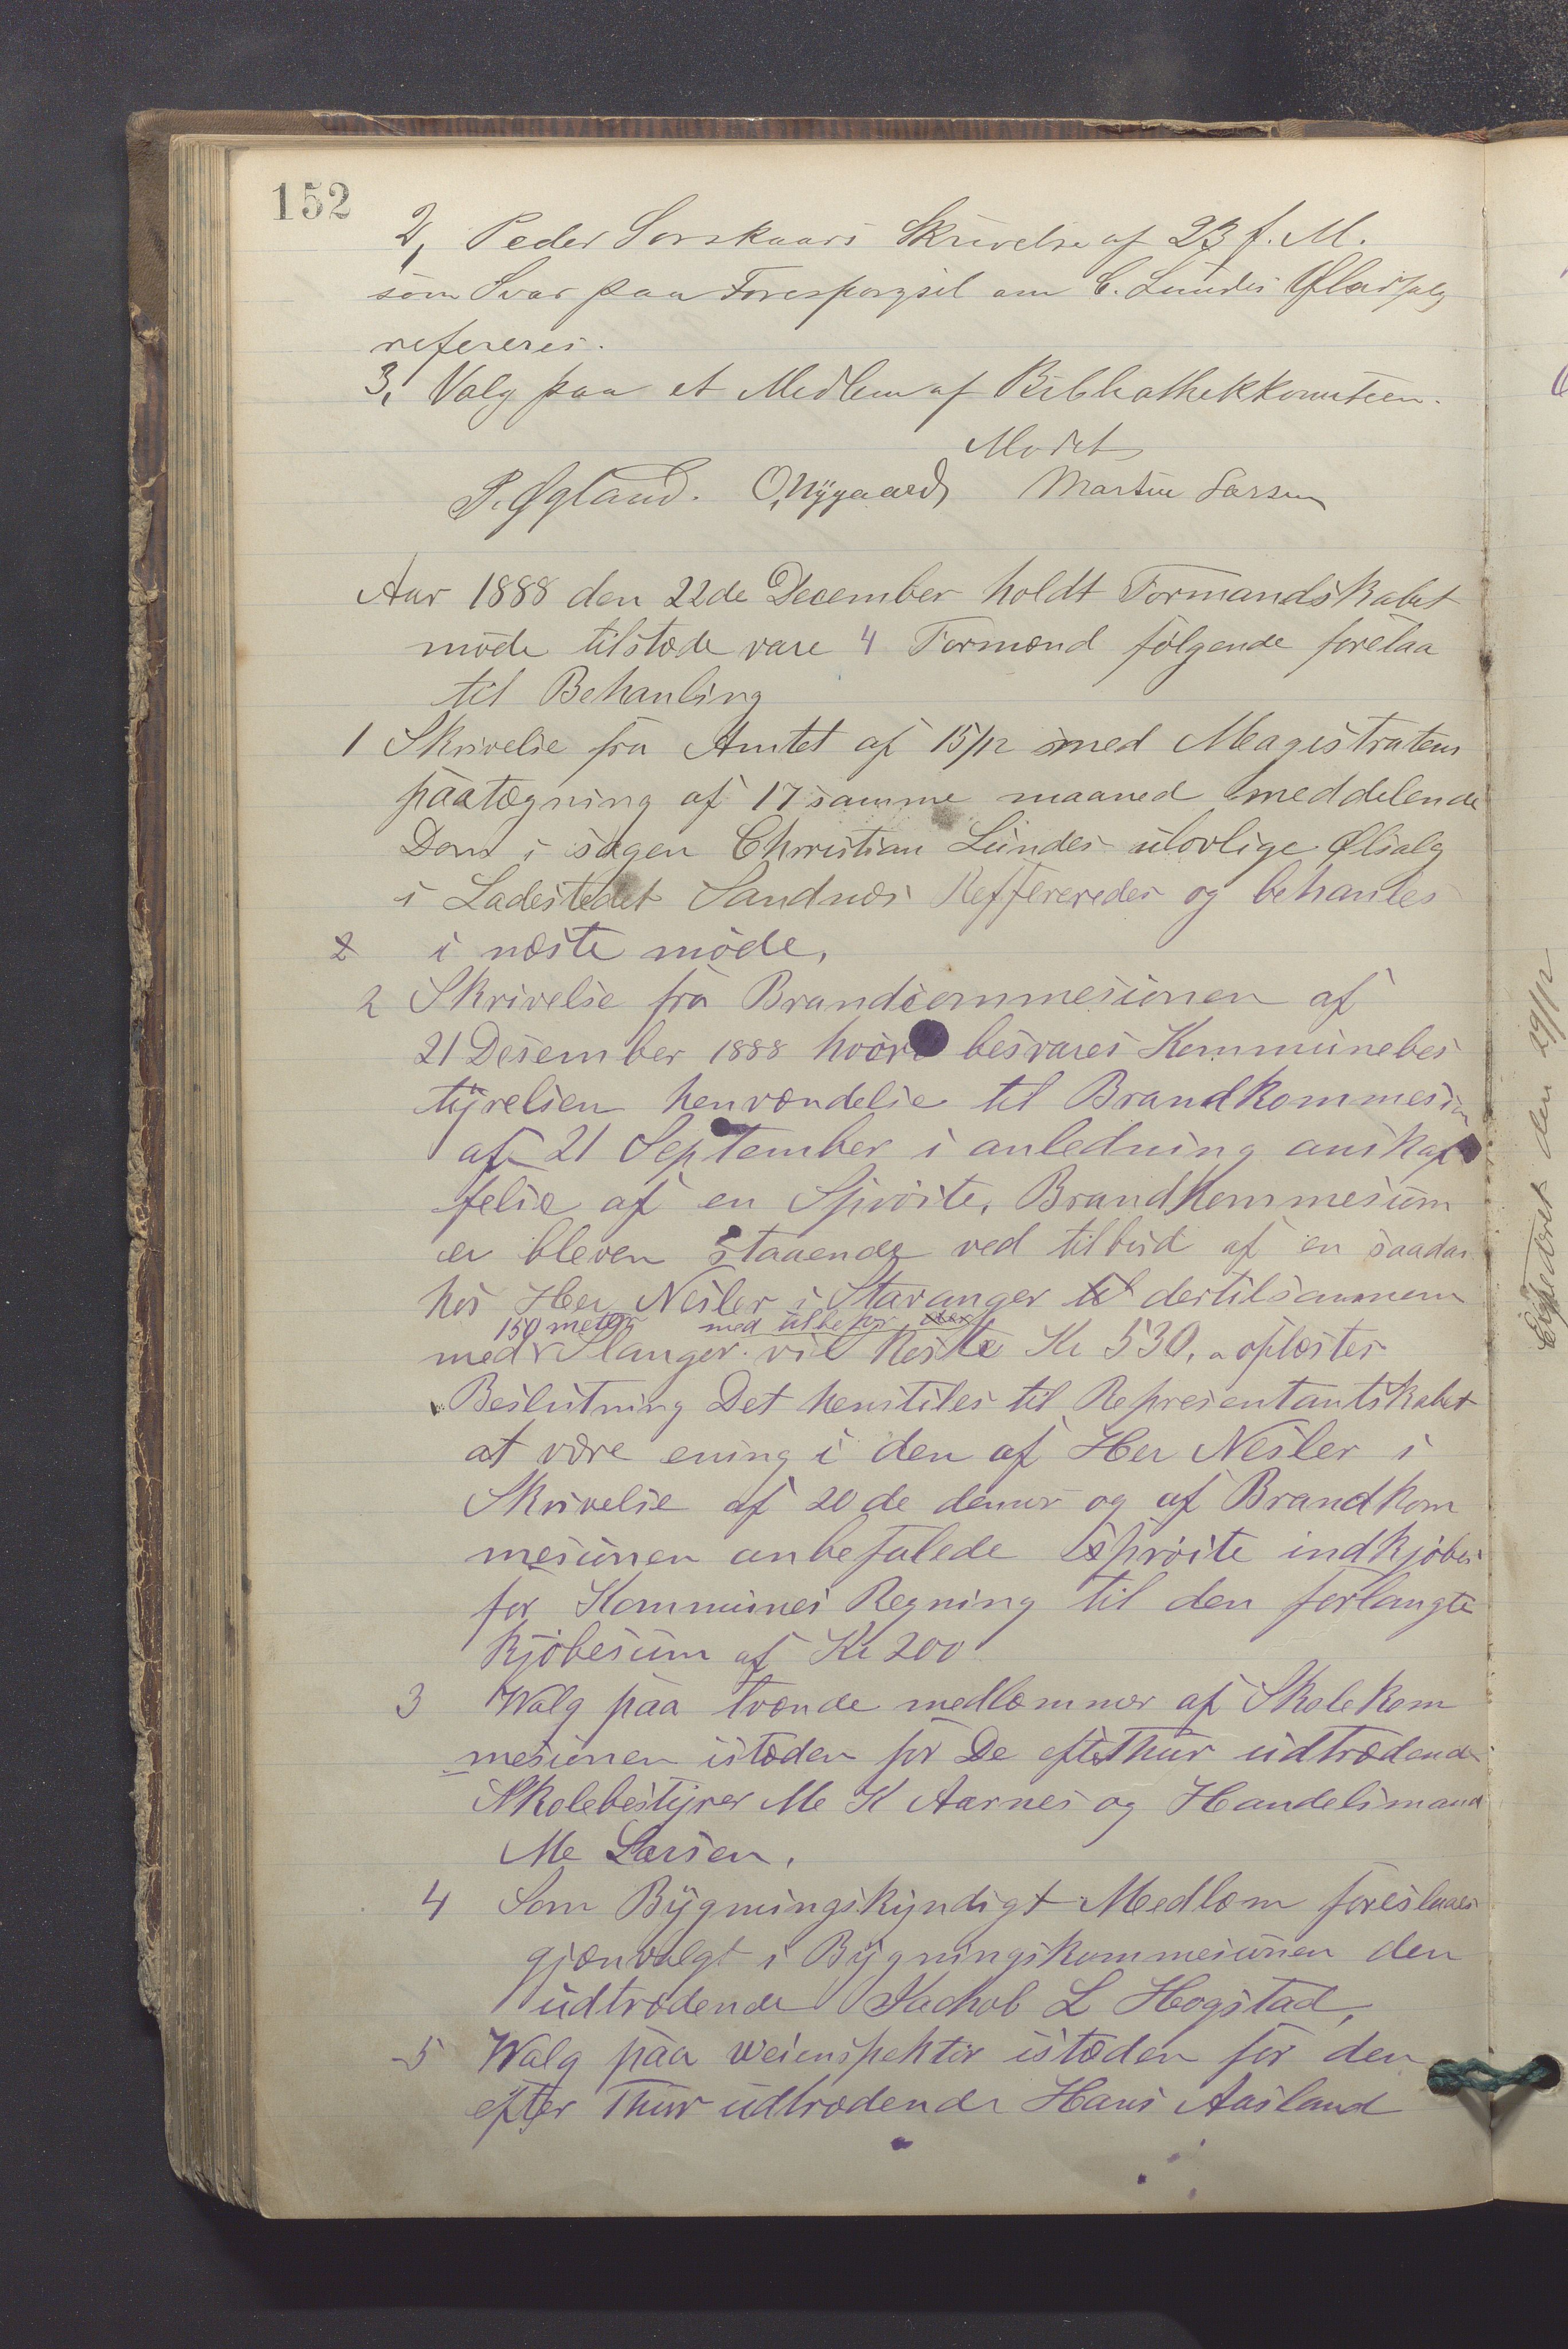 152
2, Peder Sorskaars Skrivelse af 23 f. M.
som Svar paa Forespørgsel om C. Lundes Øludsalg
refereres.
3, Valg paa et Medlem af Bibliothekkomiteen.
Mødet
P. Øgland. O, Nygaard, Martin Larsen
Aar 1888 den 22de December holdt Formandskabet
møde tilstede vare 4 Formænd følgende forelaa
til Behanling
1 Skrivelse fra Amtet af 15/12 med Magistratens
paategning af 17 samme maaned meddelende
Dom i sagen Christian Lundes ulovlige Ølsalg
i Ladestedet Sandnæs Reffereredes og behanles
2 i næste møde,
2 Skrivelse fra Brandcommesionen af
21 Desember 1888 hvori besvares Kommunebes
tyrelsen henvendelse til Brandkommesion
af 21 September i anledning anskaf
felse af en Sprøite, Brandkommesium
er bleven staaende ved tilbud af en saadan
hos Her Nesler i Stavanger dertilsammen
150 meter med
med Slanger vil koste Kr 530, oplæstes
Beslutning Det henstiles til Representantskabet
at være ening i den af Her Nesler i
Skrivelse af 20de dennes og af Brandkom
mesionen anbefalede sprøite indkjøbes
for Kommunes Regning til den forlangte
kjøbesum af Kr 200
3 Walg paa tvende medlæmmer af Skolekom
mesionen isteden for De efter Thur udtrædende
Skolebestyrer Me K Aarnes og Handelsmand
Me Larsen,
4 Som Bygningskyndigt Medlæm foreslaaes
gjenvalgt i Bygningskommesionen den
udtrædende Jachob L Hogstad,
5 Walg paa weienspektør isteden for den
efter Thur udtrædende Hans Aasland
den 29/12